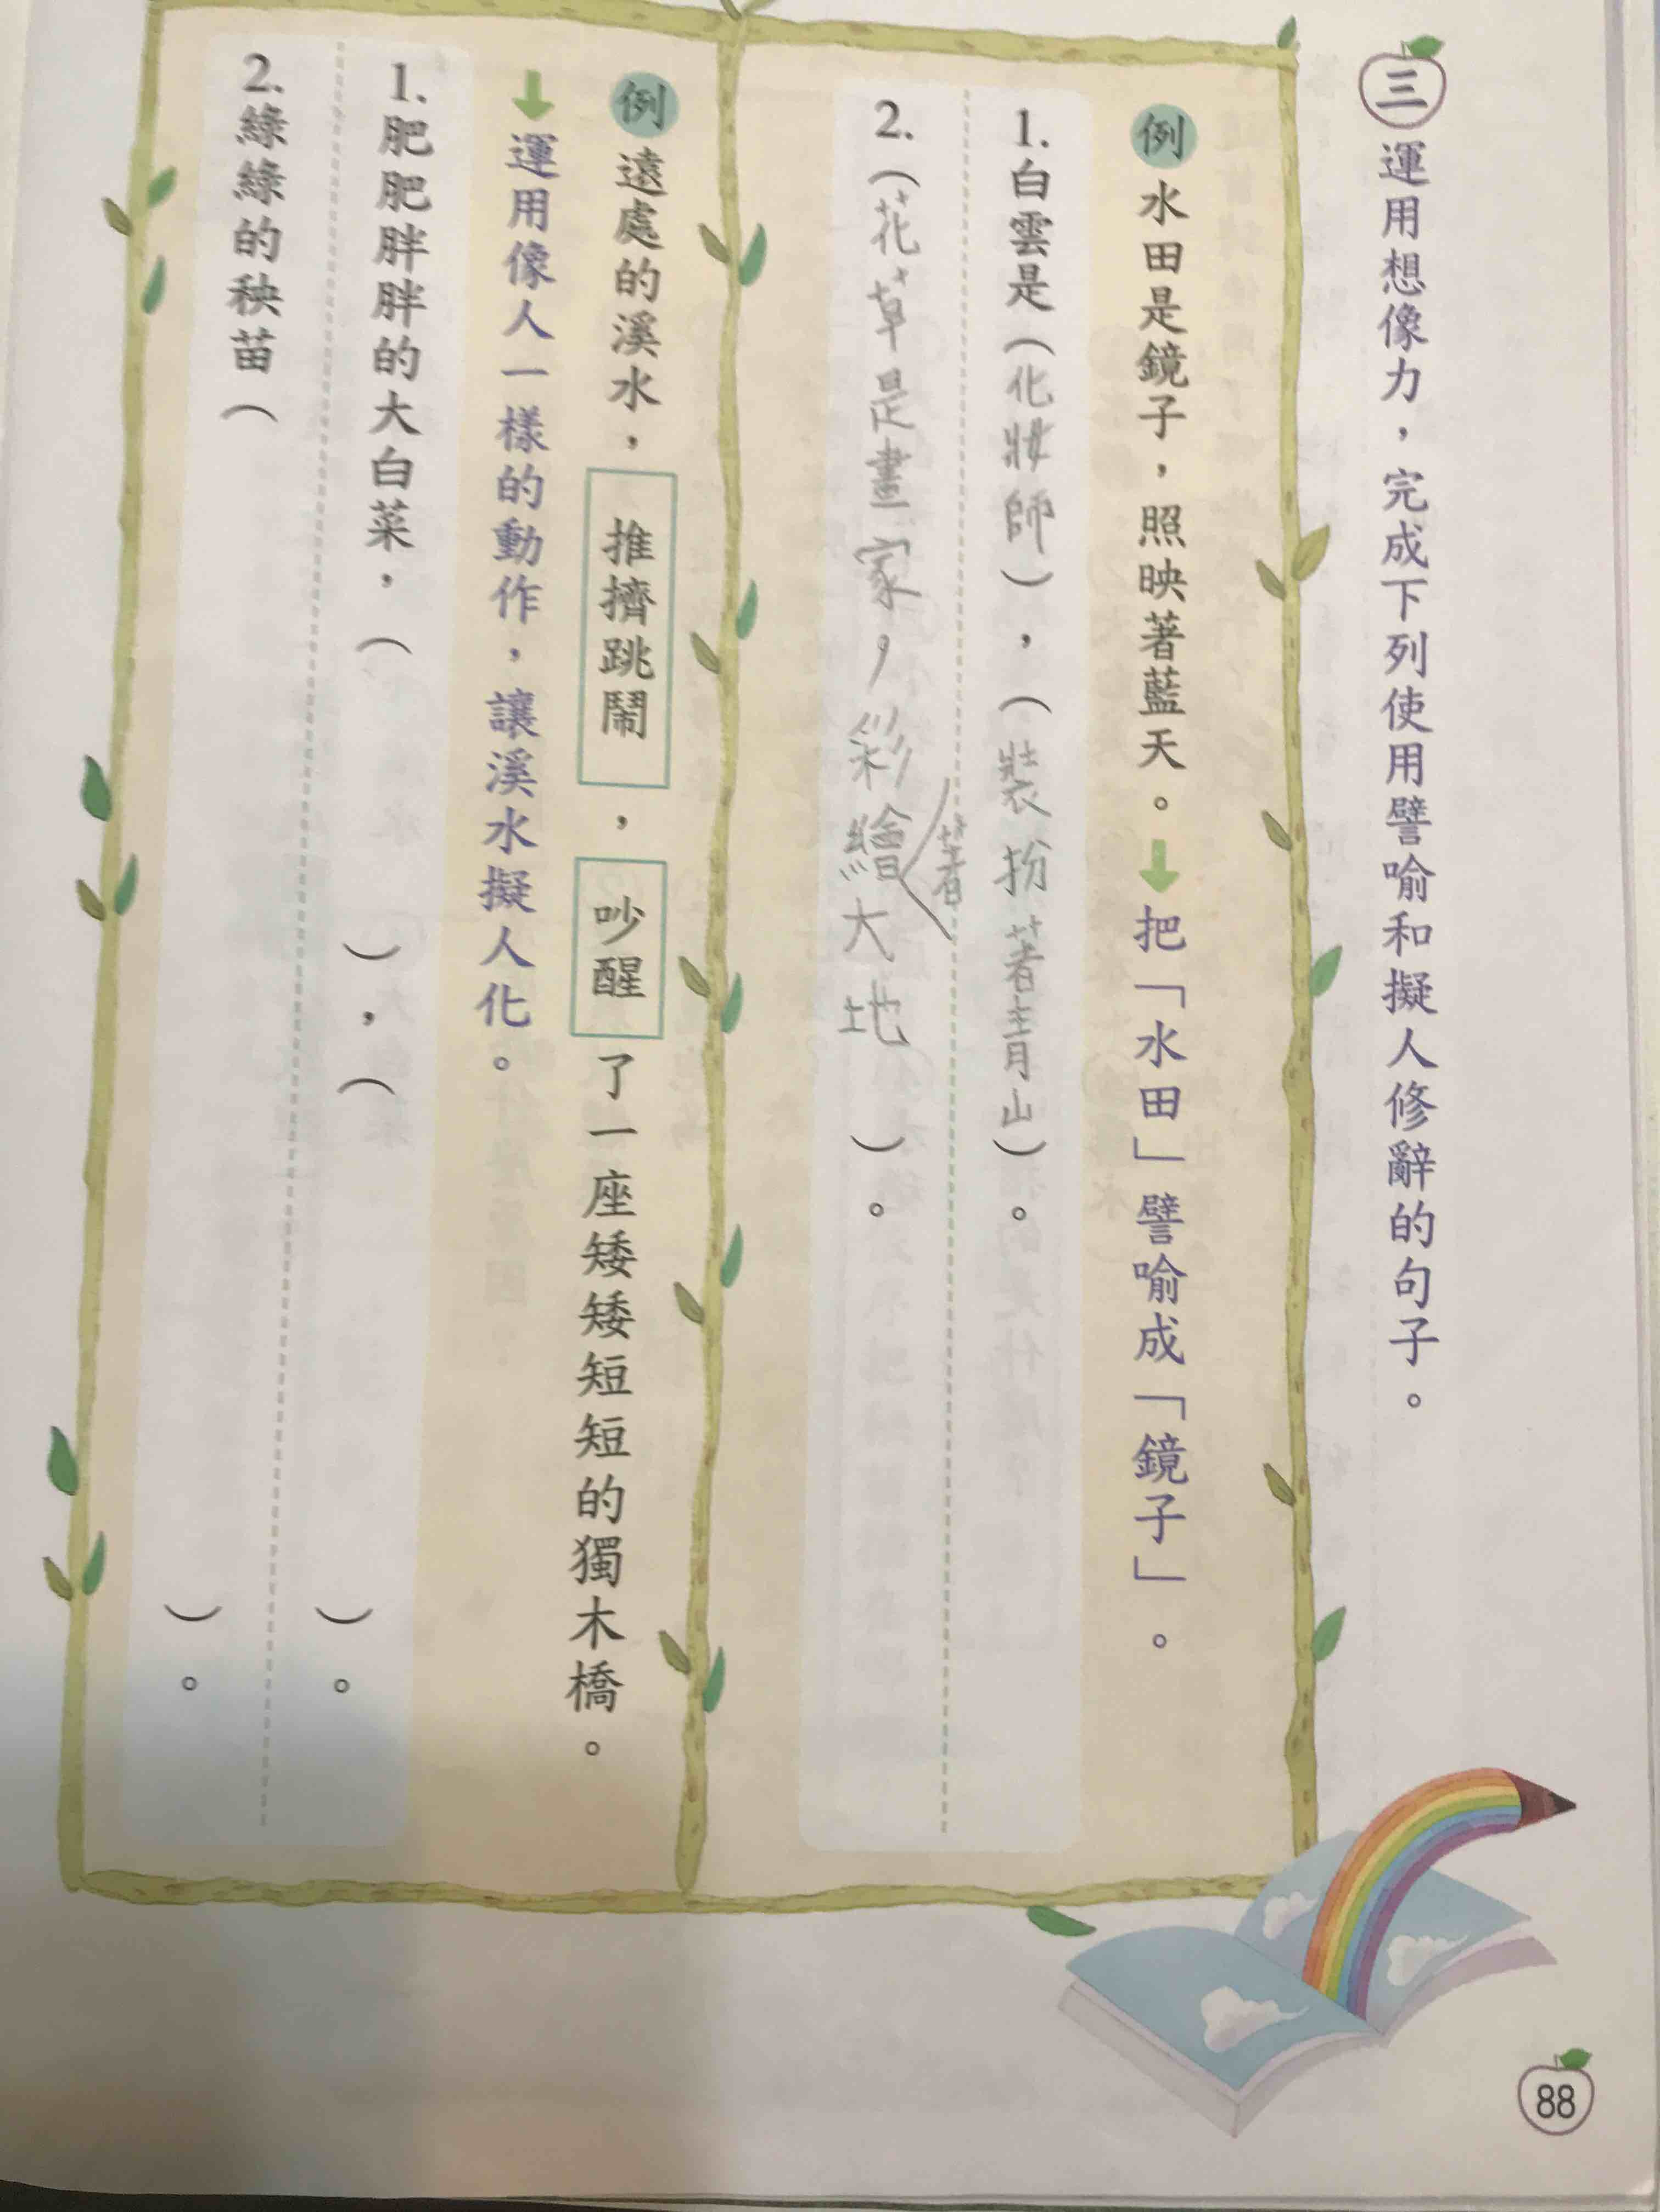 三 運用想像力，完成下列使用譬喻和擬人修辭的句子。
例 水田是鏡子，照映著藍天。↓把「水田」譬喻成「鏡子」。
1.白雲是（化妝師），（裝扮著青山）。
2.（花草是畫家，彩繪著大地）。
例 遠處的溪水，推擠跳鬧，吵醒了一座矮矮短短的獨木橋。
↓運用像人一樣的動作，讓溪水擬人化。
1.肥肥胖胖的大白菜，（），（）。
2.綠綠的秧苗（）。
88